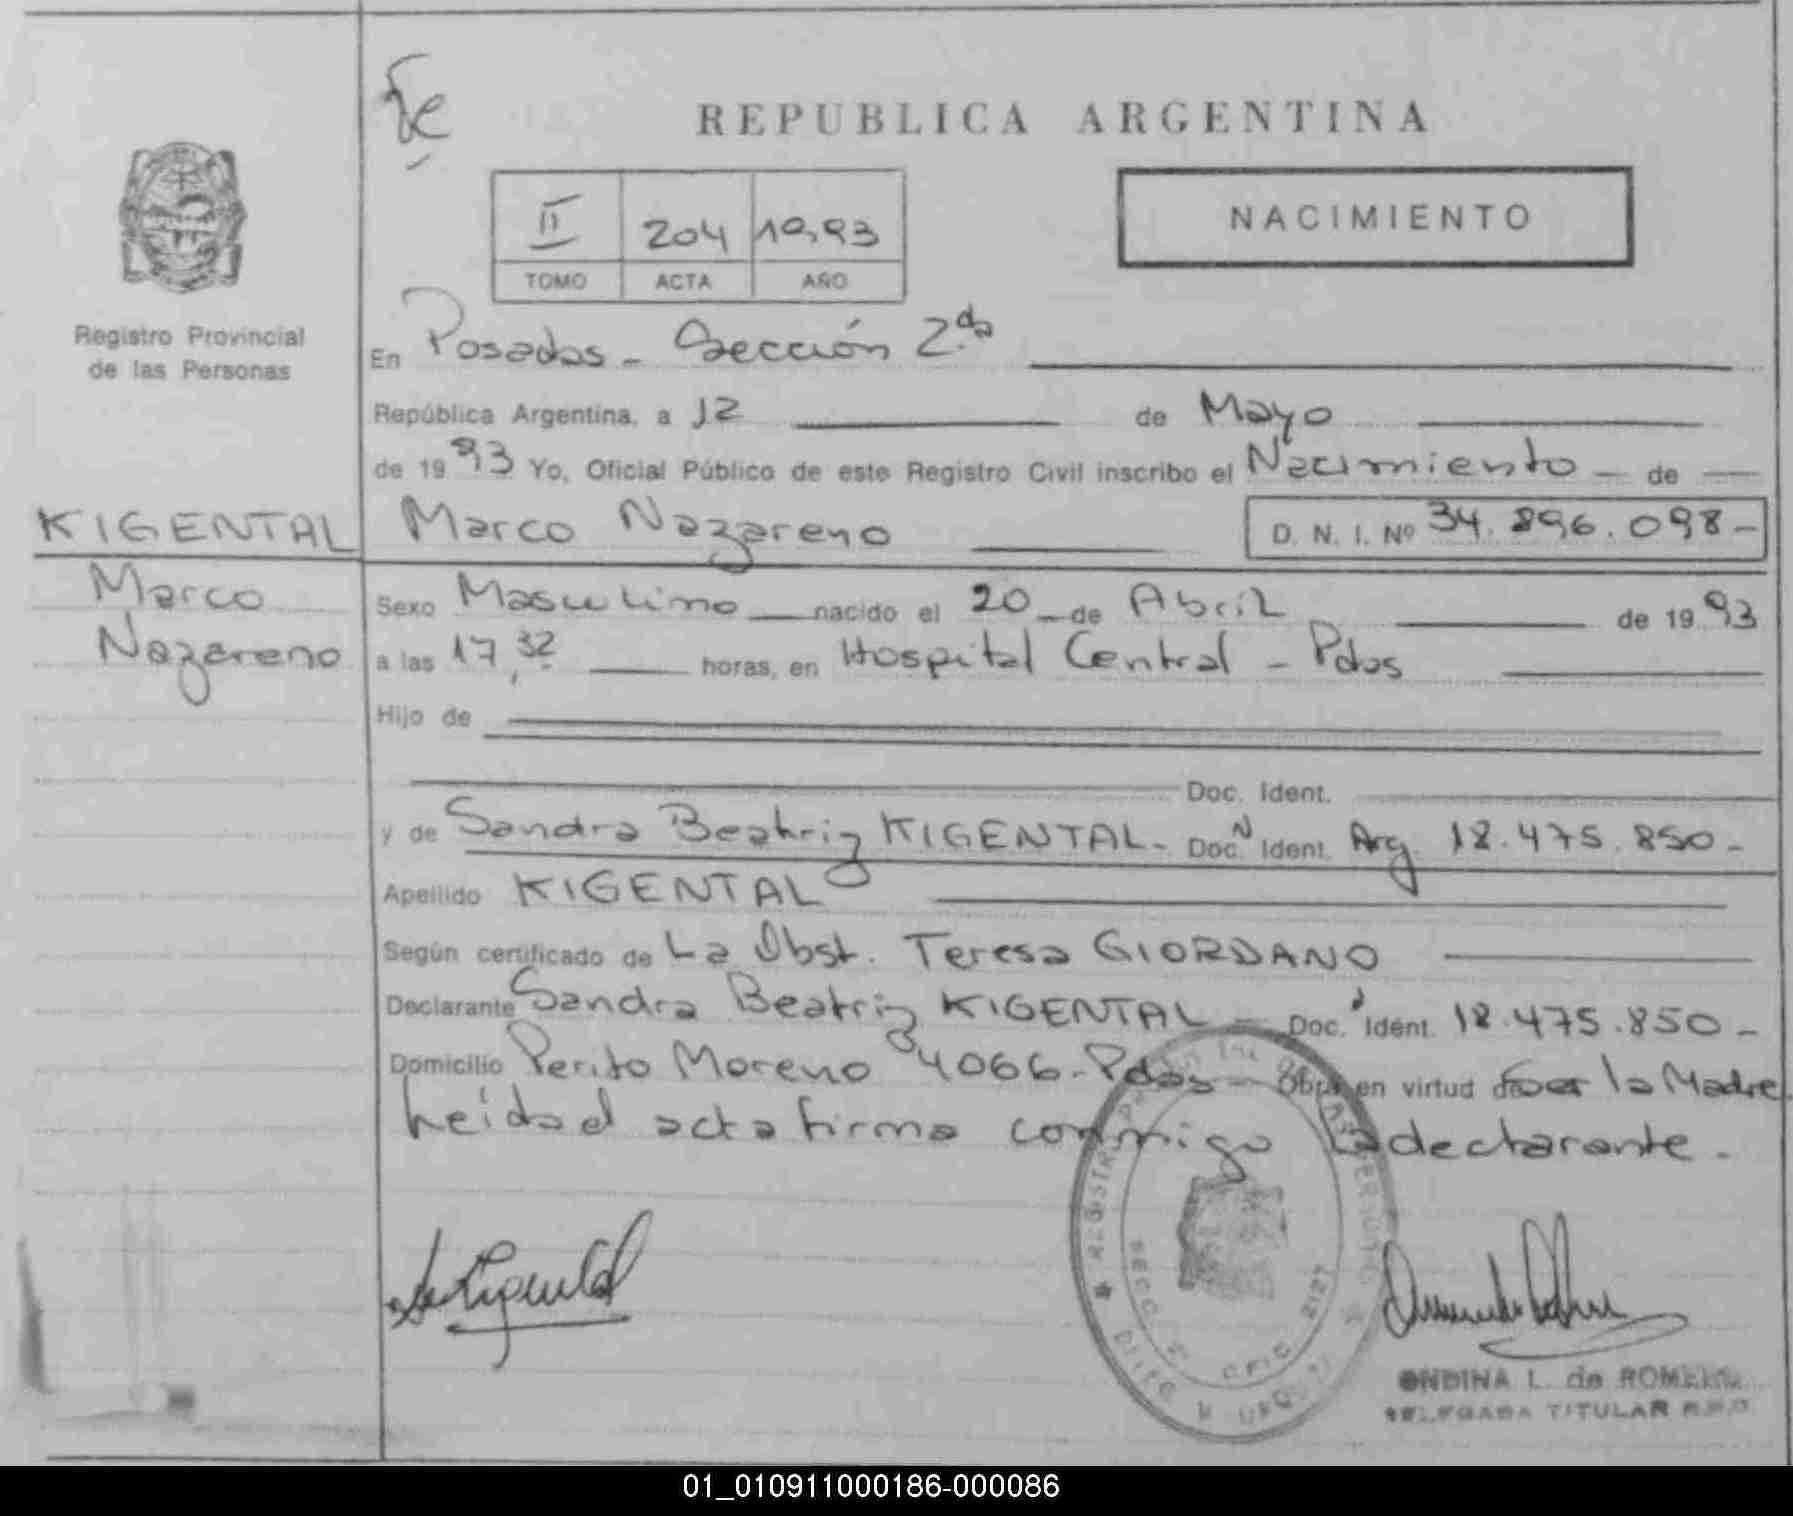 Fe
REPUBLICA ARGENTINA
II 204 1993
TOMO ACTA AÑO
NACIMIENTO
Registro Provincial
de las Personas
En Posadas - Sección 2da
República Argentina, a 12 de Mayo
de 1993 Yo, Oficial Público de este Registro Civil inscribo el Nacimiento - de
KIGENTAL Marco Nazareno D. N. I. Nº 34.896.098-
Marco
Nazareno
Sexo Masculino nacido el 20 de Abril de 1993
a las 17,32 horas, en Hospital Central - Pdas
Hijo de
Doc. Ident.
y de Sandra Beatriz KIGENTAL- Doc. N Ident. Arg. 18.475.850-
Apellido KIGENTAL
Según certificado de La Obst. Teresa GIORDANO
Declarante Sandra Beatriz KIGENTAL - Doc. Ident. 18.475.850-
Domicilio Perito Moreno 4066-Pdas - Obra en virtud de ser la Madre
Leída el acta firma conmigo la declarante.
REGISTRO PROVINCIAL DE LAS PERSONAS
SECC. 2 OFIC. 2127
ONDINA L. de ROMERO
DELEGADA TITULAR R.P.P.
01_010911000186-000086